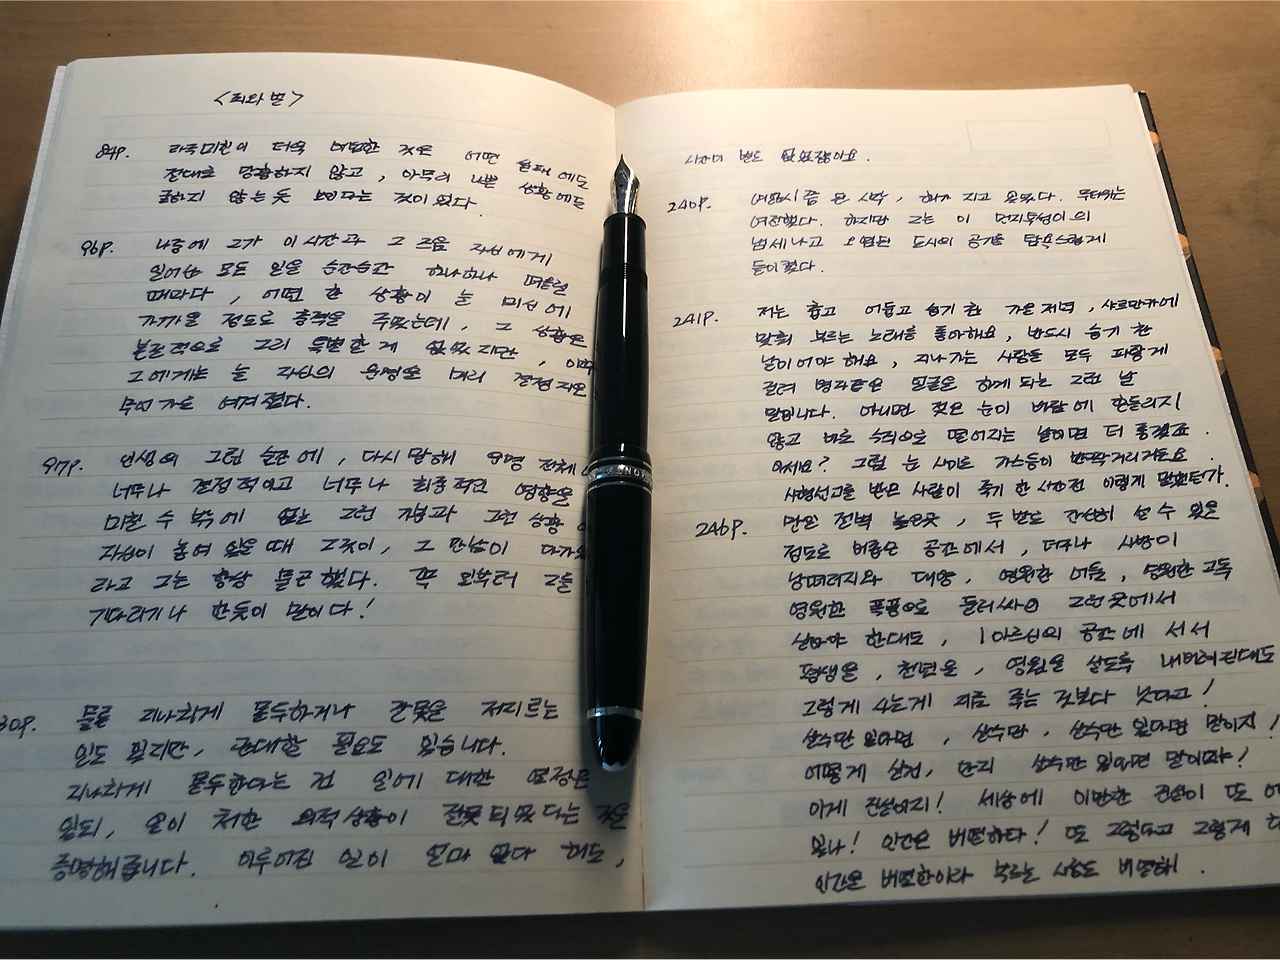 <죄와 벌>
84p. 라주미힌이 더욱 비범한 것은 어떤 실패에도
절대로 당황하지 않고, 아무리 나쁜 상황에도
굴하지 않는 듯 보인다는 것이었다.
96p. 나중에 그가 이 시간과 그 즈음 자신에게
일어난 모든 일을 순간순간 하나하나 떠올릴
때마다, 어떤 한 상황이 늘 미신에
가까울 정도로 충격을 주었는데, 그 상황은
본질적으로 그리 특별한 게 없었지만,
그에게는 늘 자신의 운명을 미리 결정지은
무언가로 여겨졌다.
97p. 인생의 그런 순간에, 다시 말해 운명 전체
너무나 결정적이고 너무나 최종적인 영향을
미칠 수 밖에 없는 그런 기분과 그런 상황
자신이 놓여 있을 때 그것이, 그 만남이
라고 그는 항상 믿곤 했다. 꼭 일부러 그를
기다리기나 한듯이 말이다!
30p. 물론 지나치게 몰두하거나 잘못을 저지르는
일도 있지만, 관대할 필요도 있습니다.
지나치게 몰두한다는 건 일에 대한 열정은
있되, 일이 처한 외적 상황이 잘못되었다는 것을
증명해줍니다. 이루어진 일이 얼마 없다 해도,
시간이 별로 없었잖아요.
240p. 여덟시 즘 된 시각, 해가 지고 있었다. 무더위는
여전했다. 하지만 그는 이 먼지투성이의
냄새나고 오염된 도시의 공기를 탐욕스럽게
들이켰다.
241p. 저는 춥고 어둡고 습기 찬 가을 저녁, 샤르만카에
맞춰 부르는 노래를 좋아해요, 반드시 습기 찬
날이어야 해요, 지나가는 사람들 모두 파랗게
질려 병자같은 얼굴을 하게 되는 그런 날
말입니다. 아니면 젖은 눈이 바람에 흔들리지
않고 바로 수직으로 떨어지는 날이면 더 좋겠죠.
아세요? 그럼 눈 사이로 가스등이 반짝거리거든요
사형선고를 받은 사람이 죽기 한 시간전 이렇게 말했던가.
246p. 만일 절벽 높은곳, 두 발로 간신히 설 수 있을
정도로 비좁은 공간에서, 더구나 사방이
낭떠러지와 대양, 영원한 어둠, 영원한 고독
영원한 폭풍으로 둘러싸인 그런 곳에서
살아야 한대도, 1아르신의 공간에 서서
평생을, 천년을, 영원을 살도록 내버려진대도
그렇게 사는게 지금 죽는 것보다 낫다고!
살수만 있다면, 살수만, 살수만 있다면 말이지!
어떻게 살건, 단지 살수만 있다면 말이야!
이게 진실이지! 세상에 이만한 진실이 또
있나! 인간은 비열하다! 또 그렇다고 그렇게
인간을 비열한이라 부르는 사람도 비열해.